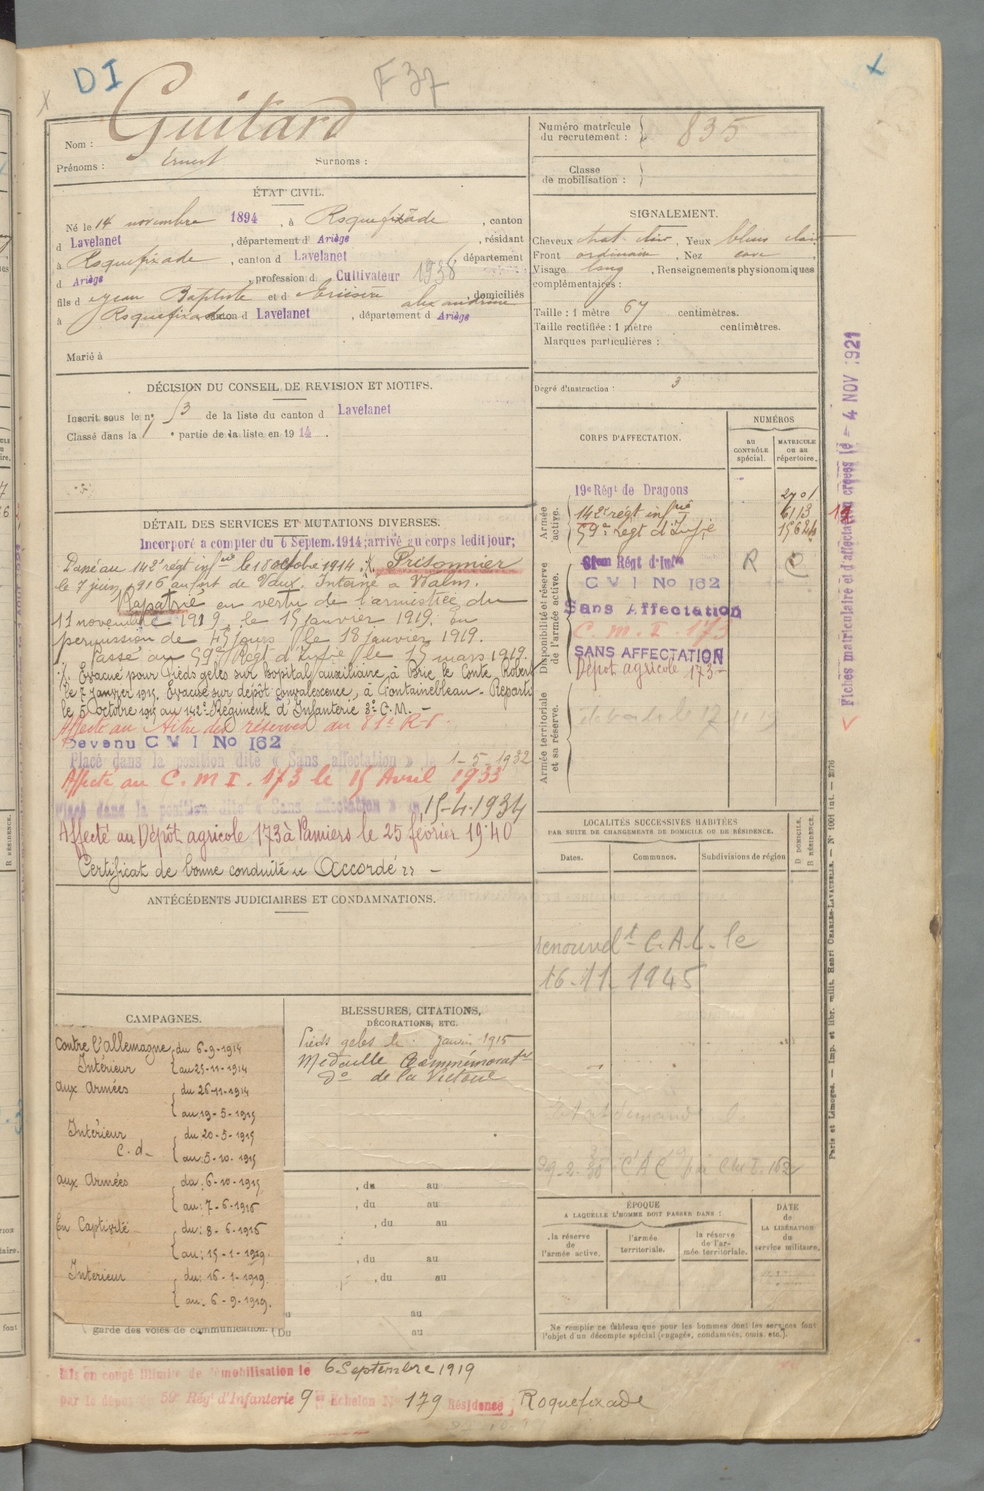 DI
F 37
Guitard
Nom :
Prénoms : Ernest Surnoms :
ÉTAT CIVIL.
Né le 14 novembre 1894, à Roquefixade, canton
d Lavelanet, département d' Ariège, résidant
à Roquefixade, canton d Lavelanet, département
d Ariège, profession d Cultivateur 1938
fils d Jean Baptiste et d alexandrine, domiciliés
à Roquefixade canton d Lavelanet, département d Ariège
Marié à
DÉCISION DU CONSEIL DE REVISION ET MOTIFS.
Inscrit sous le n° 53 de la liste du canton d Lavelanet
Classé dans la 1 partie de la liste en 1914
DÉTAIL DES SERVICES ET MUTATIONS DIVERSES.
Incorporé a compter du 6 Septem. 1914; arrivé au corps ledit jour;
Passé au 142e régt infrie le 18 octobre 1914. X. Prisonnier
le 7 juin 1916 au fort de Vaux. Interné à
Rapatrié en vertu de l'armistice du
11 novembre 1919, le 15 janvier 1919, en
permission de 45 jours le 18 janvier 1919.
Passé au 59e Régt d'Infie le 15 mars 1919.
X. Evacué pour Pieds gelés sur hopital auxiliaire, à Brie le Conte Robert
le 7 janvier 1915. Evacué sur dépôt convalescence, à Fontainebleau - Reparti
le 5 octobre 1915 au 142e Régiment d'Infanterie 3e C.M. -
Affecté au titre des réserves au R.I.
Devenu C M I No 162
Placé dans la position dite « Sans affectation » le 1-5-1932
Affecté au C. M. I. 173 le 15 Avril 1933
Placé dans la position dite « Sans affectation » 15-4-1934
Affecté au Dépôt agricole 173 à Pamiers le 25 février 1940
Certificat de bonne conduite « Accordé » -
ANTÉCÉDENTS JUDICIAIRES ET CONDAMNATIONS.
CAMPAGNES.
Contre l'allemagne, du 6-9-1914
Intérieur { au 25-11-1914
aux Armées { du 26-11-1914
{ au 19-5-1915
Intérieur { du 20-5-1915
C. d. { au 5-10-1915
aux Armées { du: 6-10-1915
{ au: 7-6-1916
En Captivité { du: 8-6-1916
{ au: 15-1-1919.
Intérieur { du: 16-1-1919.
{ au. 6-9-1919.
garde des voies de communication. { Du au
BLESSURES, CITATIONS,
DÉCORATIONS, ETC.
Pieds gelés le janvier 1915
Médaille Commémorative
d° de la Victoire
, du au
, du au
, du au
, du au
, du au
au
Mis en congé illimité de démobilisation le 6 Septembre 1919
par le dépôt du 59e Rég. d'Infanterie 9e Echelon No 179 Résidence ; Roquefixade
Numéro matricule
du recrutement : 835
Classe
de mobilisation :
SIGNALEMENT.
Cheveux chat. clair, Yeux bleus clair
Front ordinaire, Nez cave,
Visage long, Renseignements physionomiques
complémentaires :
Taille : 1 mètre 67 centimètres.
Taille rectifiée : 1 mètre centimètres.
Marques particulières :
Degré d'instruction : 3
CORPS D'AFFECTATION.
NUMÉROS
AU CONTRÔLE spécial.
MATRICULE ou au répertoire.
Armée active.
19e Régt de Dragons 2701
142e régt infrie 6113
59e Regt d'Infie 15624
Disponibilité et réserve de l'armée active.
Régt d'Infie R C
C M I No 162
Sans Affectation
C. M. I. 173
SANS AFFECTATION
Dépôt agricole 173 -
Armée territoriale et sa réserve.
LOCALITÉS SUCCESSIVES HABITÉES
PAR SUITE DE CHANGEMENTS DE DOMICILE OU DE RÉSIDENCE.
Dates.
Communes.
Subdivisions de région
D. DOMICILE.
R. RÉSIDENCE.
renouvelt C.A.C. le
16-11-1945
ÉPOQUE
A LAQUELLE L'HOMME DOIT PASSER DANS :
la réserve de l'armée active.
l'armée territoriale.
la réserve de l'armée territoriale.
DATE de LA LIBÉRATION du service militaire.
Ne remplir ce tableau que pour les hommes dont les services font
l'objet d'un décompte spécial (engagés, condamnés, omis, etc.).
Fiches matriculaire et d'affectation créées le - 4 NOV 1921
Paris et Limoges. — Imp. et libr. milit. Henri CHARLES-LAVAUZELLE. — N° 1001 int. — 2076